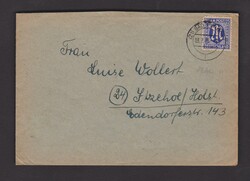 Frau
Luise Wollert
(24) Itzehoe/Holst
Edendorferstr. 143